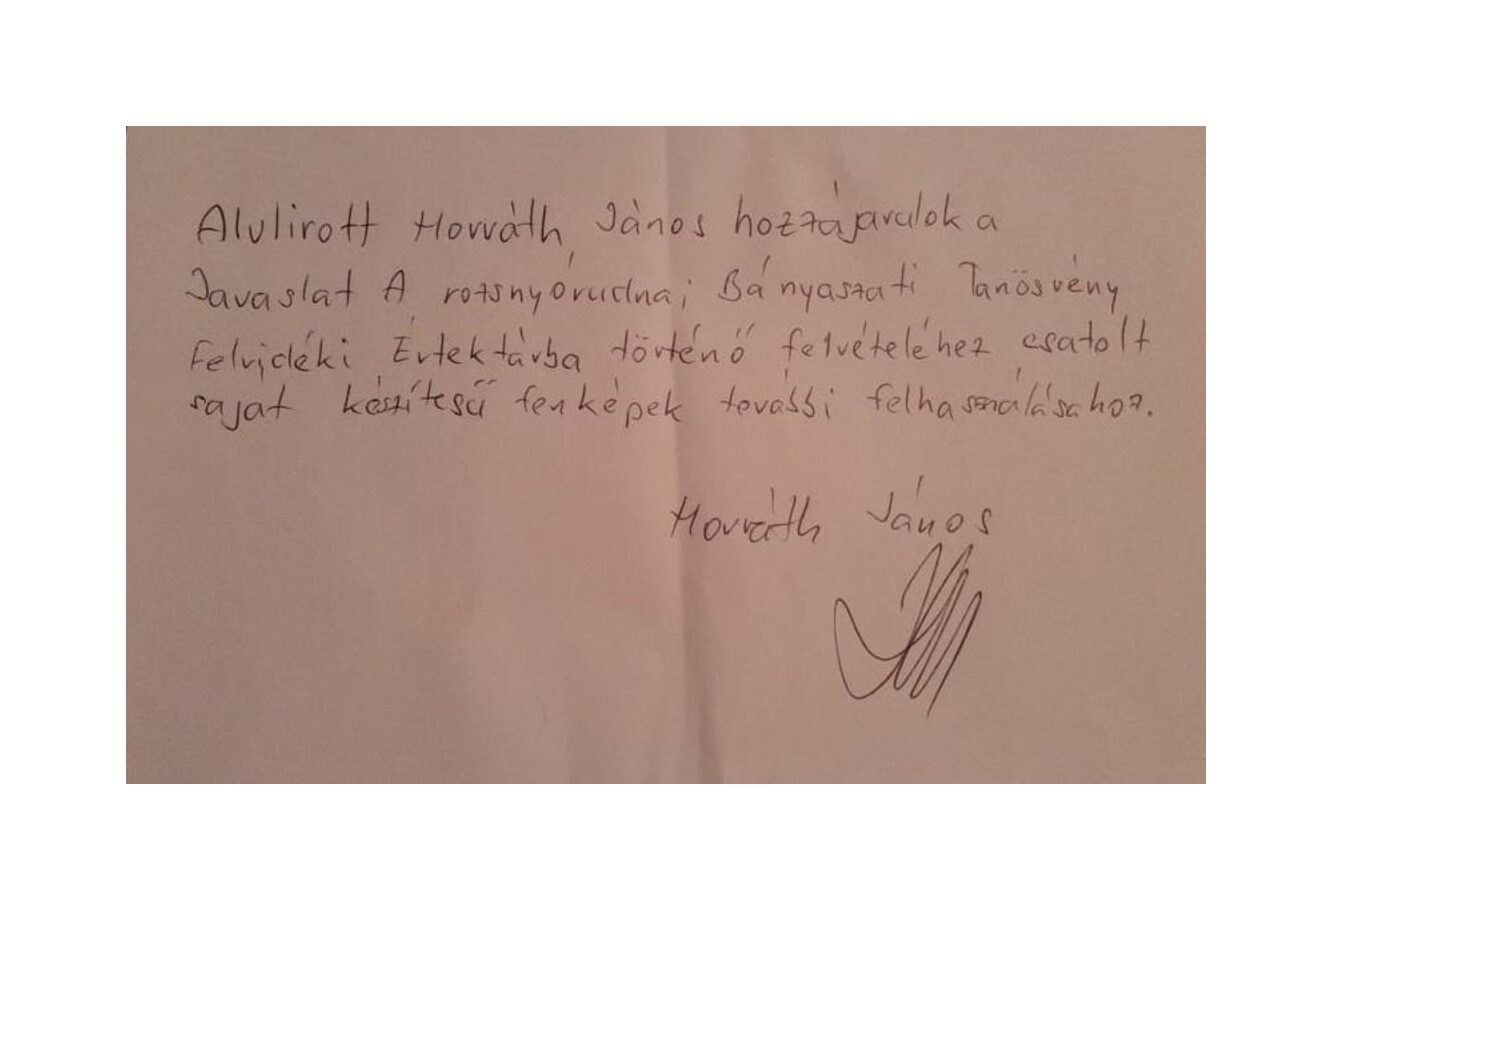 Alulirott Horváth János hozzájarulok a
Javaslat A rozsnyórudnai Bányaszati Tanösvény
Felvidéki Értektárba történő felvételéhez csatolt
sajat készítésű fenképek további felhasználásahoz.
Horváth János